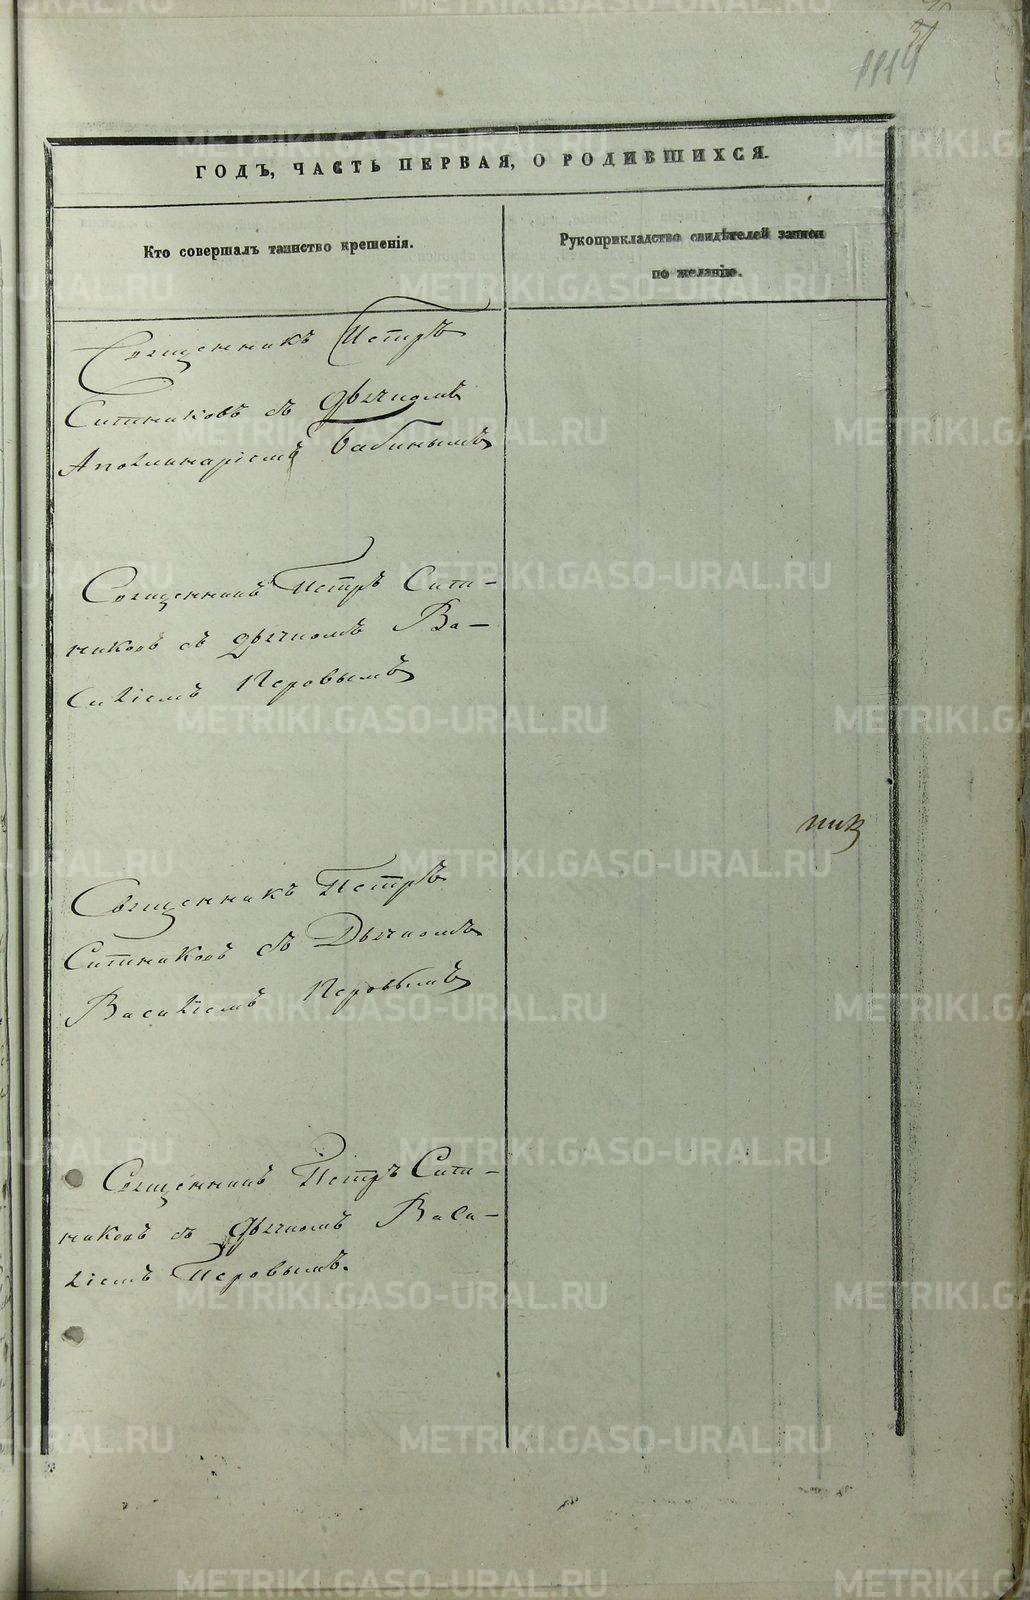 31
1114
ГОДЪ, ЧАСТЬ ПЕРВАЯ, О РОДИВШИХСЯ.
Кто совершалъ таинство крещенія.
Рукоприкладство свидѣтелей записи
по желанію.
Священникъ Петръ
Ситниковъ съ дьячкомъ
Аполинаріемъ Бабинымъ
Священникъ Петръ Сит-
никовъ съ дьячкомъ Ва-
силіемъ Перовымъ
Священникъ Петръ
Ситниковъ съ Дьячкомъ
Василіемъ Перовымъ
Священникъ Петръ Сит-
никовъ съ Дьячкомъ Васи-
ліемъ Перовымъ.
METRIKI.GASO-URAL.RU